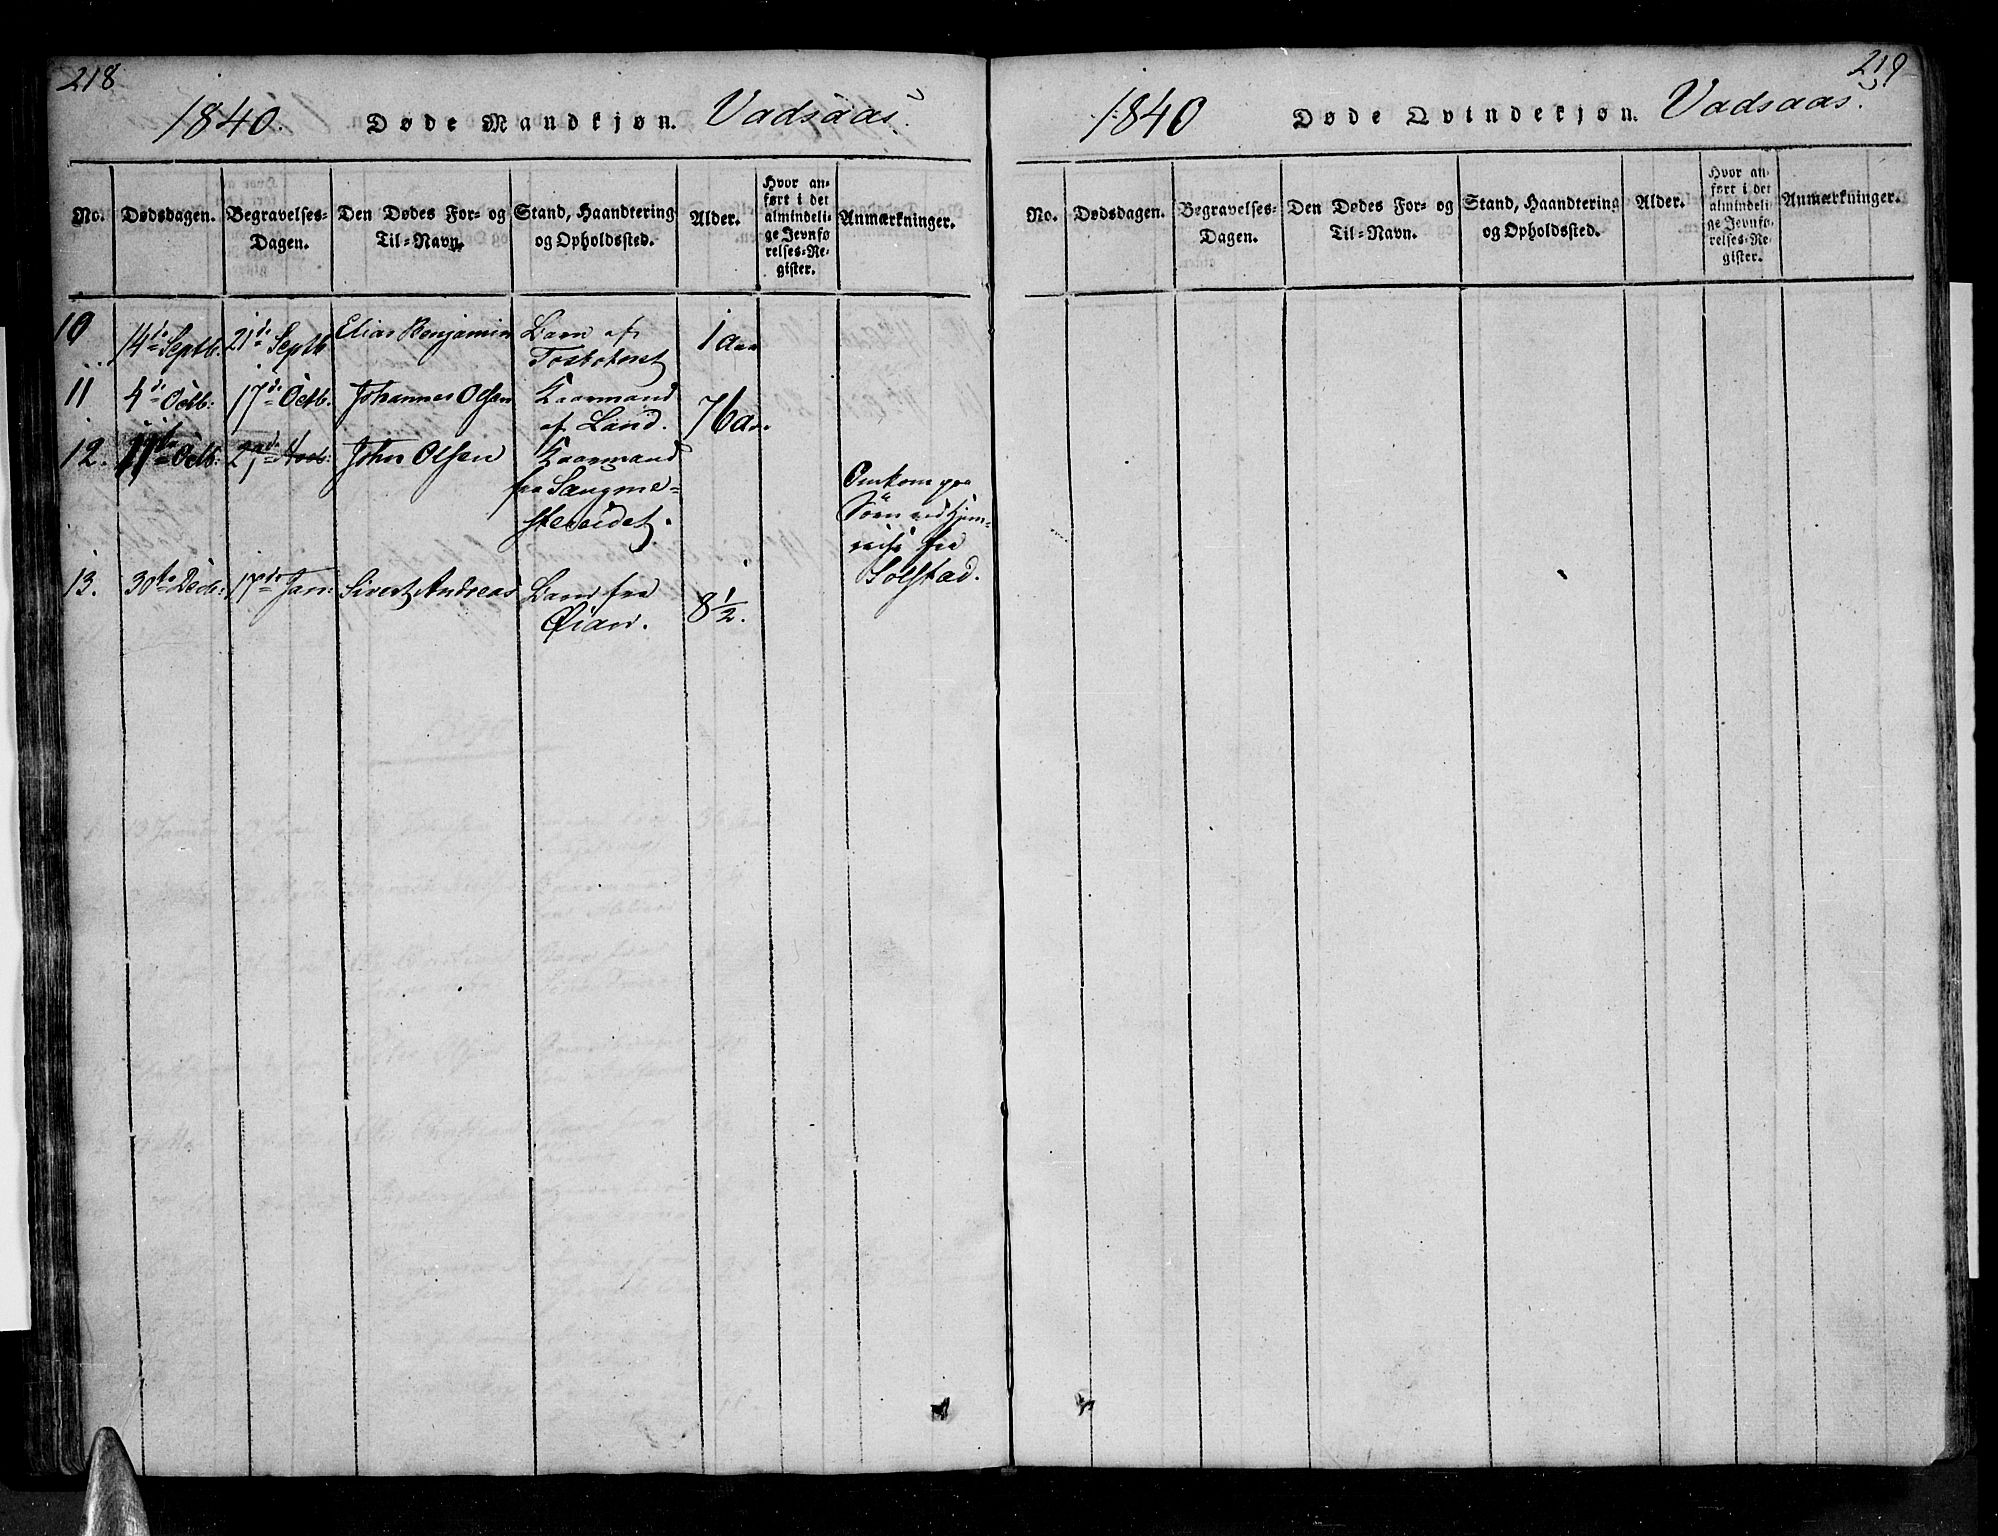 218
1840. Døde Mandkjøn. Vadsaas.
No. Dødsdagen. Begravelses-Dagen. Den Dødes For- og Til-Navn. Stand, Haandtering og Opholdssted. Alder. Hvor anført i det almindelige Jevnførelses-Register. Anmærkninger.
10 14de Septb. 21de Septb Elias Benjamin Barn af 1 Aar
11 4de Octb. 17de Octb. Johannes Olsen Kaarmand af Land. 76 Aar.
12. 11te Octb. John Olsen Kaarmand fra Saugmestereidet. Omkom paa Söen ved Hjemreise fra Solstad.
13. 30te Decbr. 17de Jan: Sivert Andreas Barn fra Øian. 8 1/2.
219
1840 Døde Qvindekjøn. Vadsaas.
No. Dødsdagen. Begravelses-Dagen. Den Dødes For- og Til-Navn. Stand, Haandtering og Opholdssted. Alder. Hvor anført i det almindelige Jevnførelses-Register. Anmærkninger.